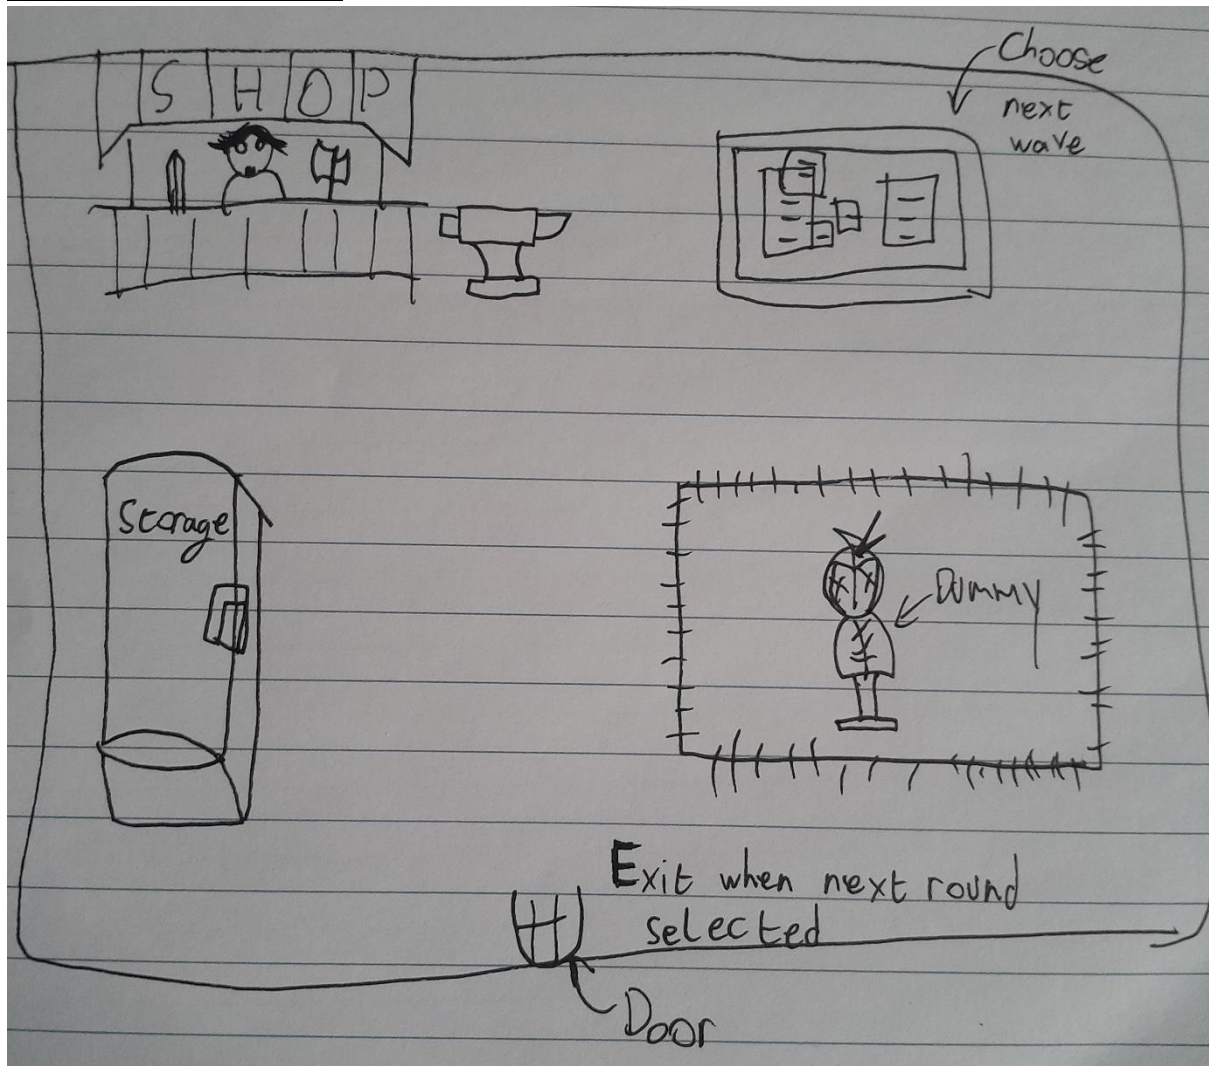 SHOP
Choose
next
wave
Storage
Dummy
Exit when next round
selected
Door